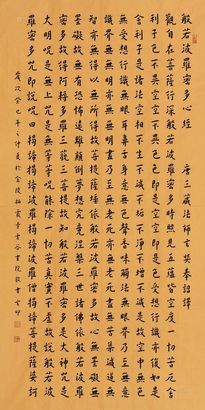 般若波羅蜜多心經 唐三藏法師玄奘詔譯
觀自在菩薩行深般若波羅蜜多時照見五蘊皆空度一切苦厄舍
利子色不異空空不異色色即是空空即是色受想行識亦復如是
舍利子是諸法空相不生不滅不垢不淨不增不減是故空中無色
無受想行識無眼耳鼻舌身意無色聲香味觸法無眼界乃至無意
識界無無明亦無無明盡乃至無老死亦無老死盡無苦集滅道無
智亦無得以無所得故菩提薩埵依般若波羅蜜多故心無罣礙無
罣礙故無有恐怖遠離顛倒夢想究竟涅槃三世諸佛依般若波羅
蜜多故得阿耨多羅三藐三菩提故知般若波羅蜜多是大神咒是
大明咒是無上咒是無等等咒能除一切苦真實不虛故說般若波羅
蜜多咒即說咒曰揭諦揭諦波羅揭諦波羅僧揭諦菩提薩婆訶
歲次癸巳年之仲夏於金陵栖霞寺雲谷書院敬書